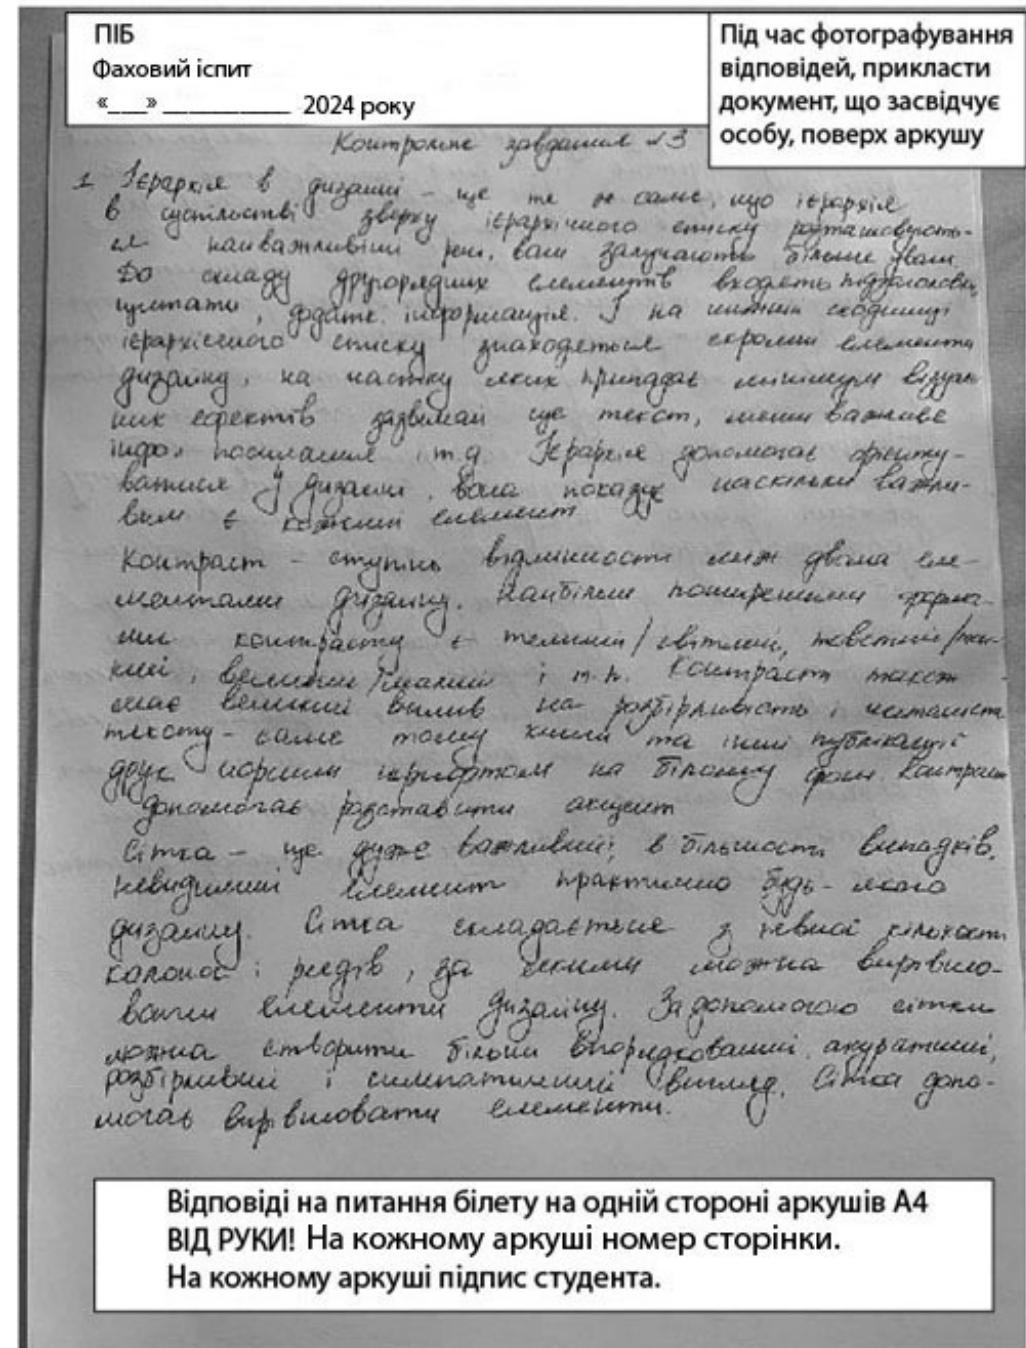 ПІБ
Фаховий іспит
«___» ___________ 2024 року
Під час фотографування
відповідей, прикласти
документ, що засвідчує
особу, поверх аркушу
Контрольне завдання №3
1 Ієрархія в дизайні – це те ж саме, що ієрархія
в суспільстві зверху ієрархічного списку розташовують-
ся найважливіші речі, вони залучають більше уваги
До складу другорядних елементів входять підзаголовки,
цитати, додатк. інформація. І на нижній сходинці
ієрархічного списку знаходяться скромні елементи
дизайну, на частку яких припадає мінімум візуаль
них ефектів зазвичай це текст, менш важливе
інфо, посилання і т.д. Ієрархія допомагає орієнту-
ватися у дизайні, вона показує наскільки важли-
вим є кожний елемент
Контраст – ступінь відмінності між двома еле-
ментами дизайну. Найбільш поширеними форма-
ми контрасту є темний/світлий, товстий/тон-
кий, великий/малий і т.п. Контраст також
має великий вплив на розбірливість і читаність
тексту – саме тому книги та інші публікації
друк чорним шрифтом на білому фоні. Контраст
допомагає розставити акцент
Сітка – це дуже важливий, в більшості випадків,
невидимий елемент практично будь-якого
дизайну. Сітка складається з певної кількості
колонок і рядів, за якими можна вирівню-
вати елементи дизайну. За допомогою сітки
можна створити більш впорядкований, акуратний,
розбірливий і симпатичний вигляд. Сітка допо-
магає вирівнювати елементи.
Відповіді на питання білету на одній стороні аркушів А4
ВІД РУКИ! На кожному аркуші номер сторінки.
На кожному аркуші підпис студента.